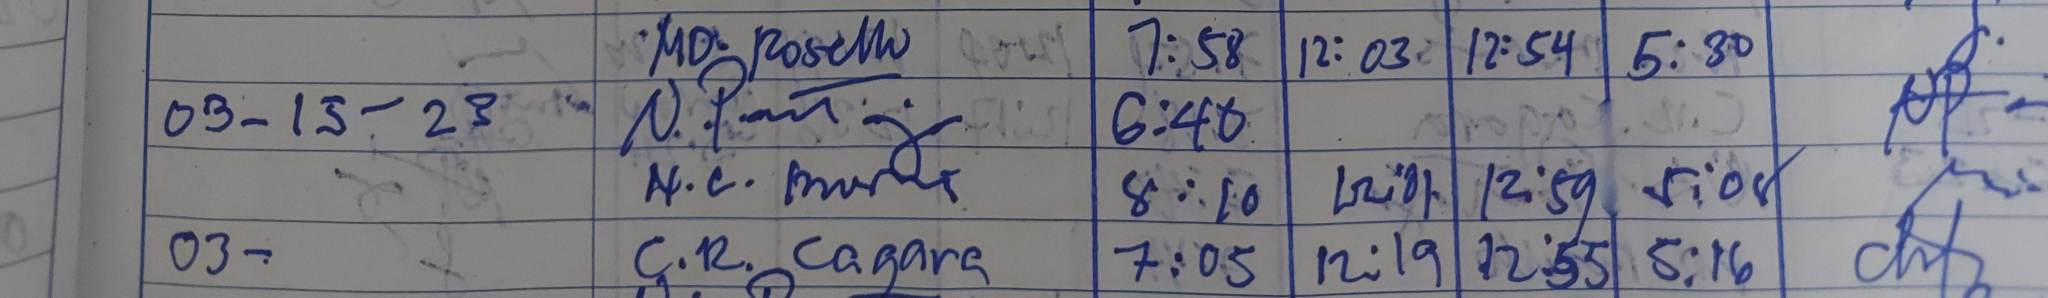 MD. Rosello 7:58 12:03 12:54 5:30
03-15-23 N. 6:40
H.C. 8:10 12:01 12:59 5:08
03- C.R. Cagara 7:05 12:19 12:55 5:16